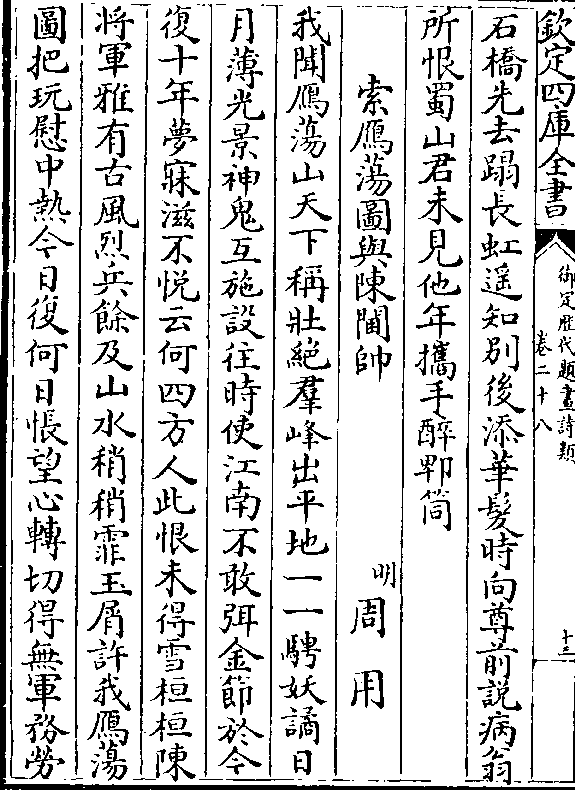 欽定四庫全書
御定歴代題畫詩類
卷二十八
十三
石橋先去蹋長虹遥知别後添華髮時向尊前説病翁
所恨蜀山君未見他年攜手醉郫筒
索鴈蕩圖與陳閫帥
明周用
我聞鴈蕩山天下稱壯絶羣峰出平地一一騁妖譎日
月薄光景神鬼互施設往時使江南不敢弭金節於今
復十年夢寐滋不悦云何四方人此恨未得雪桓桓陳
將軍雅有古風烈兵餘及山水稍稍霏玉屑許我鴈蕩
圖把玩慰中熱今日復何日悵望心轉切得無軍務勞